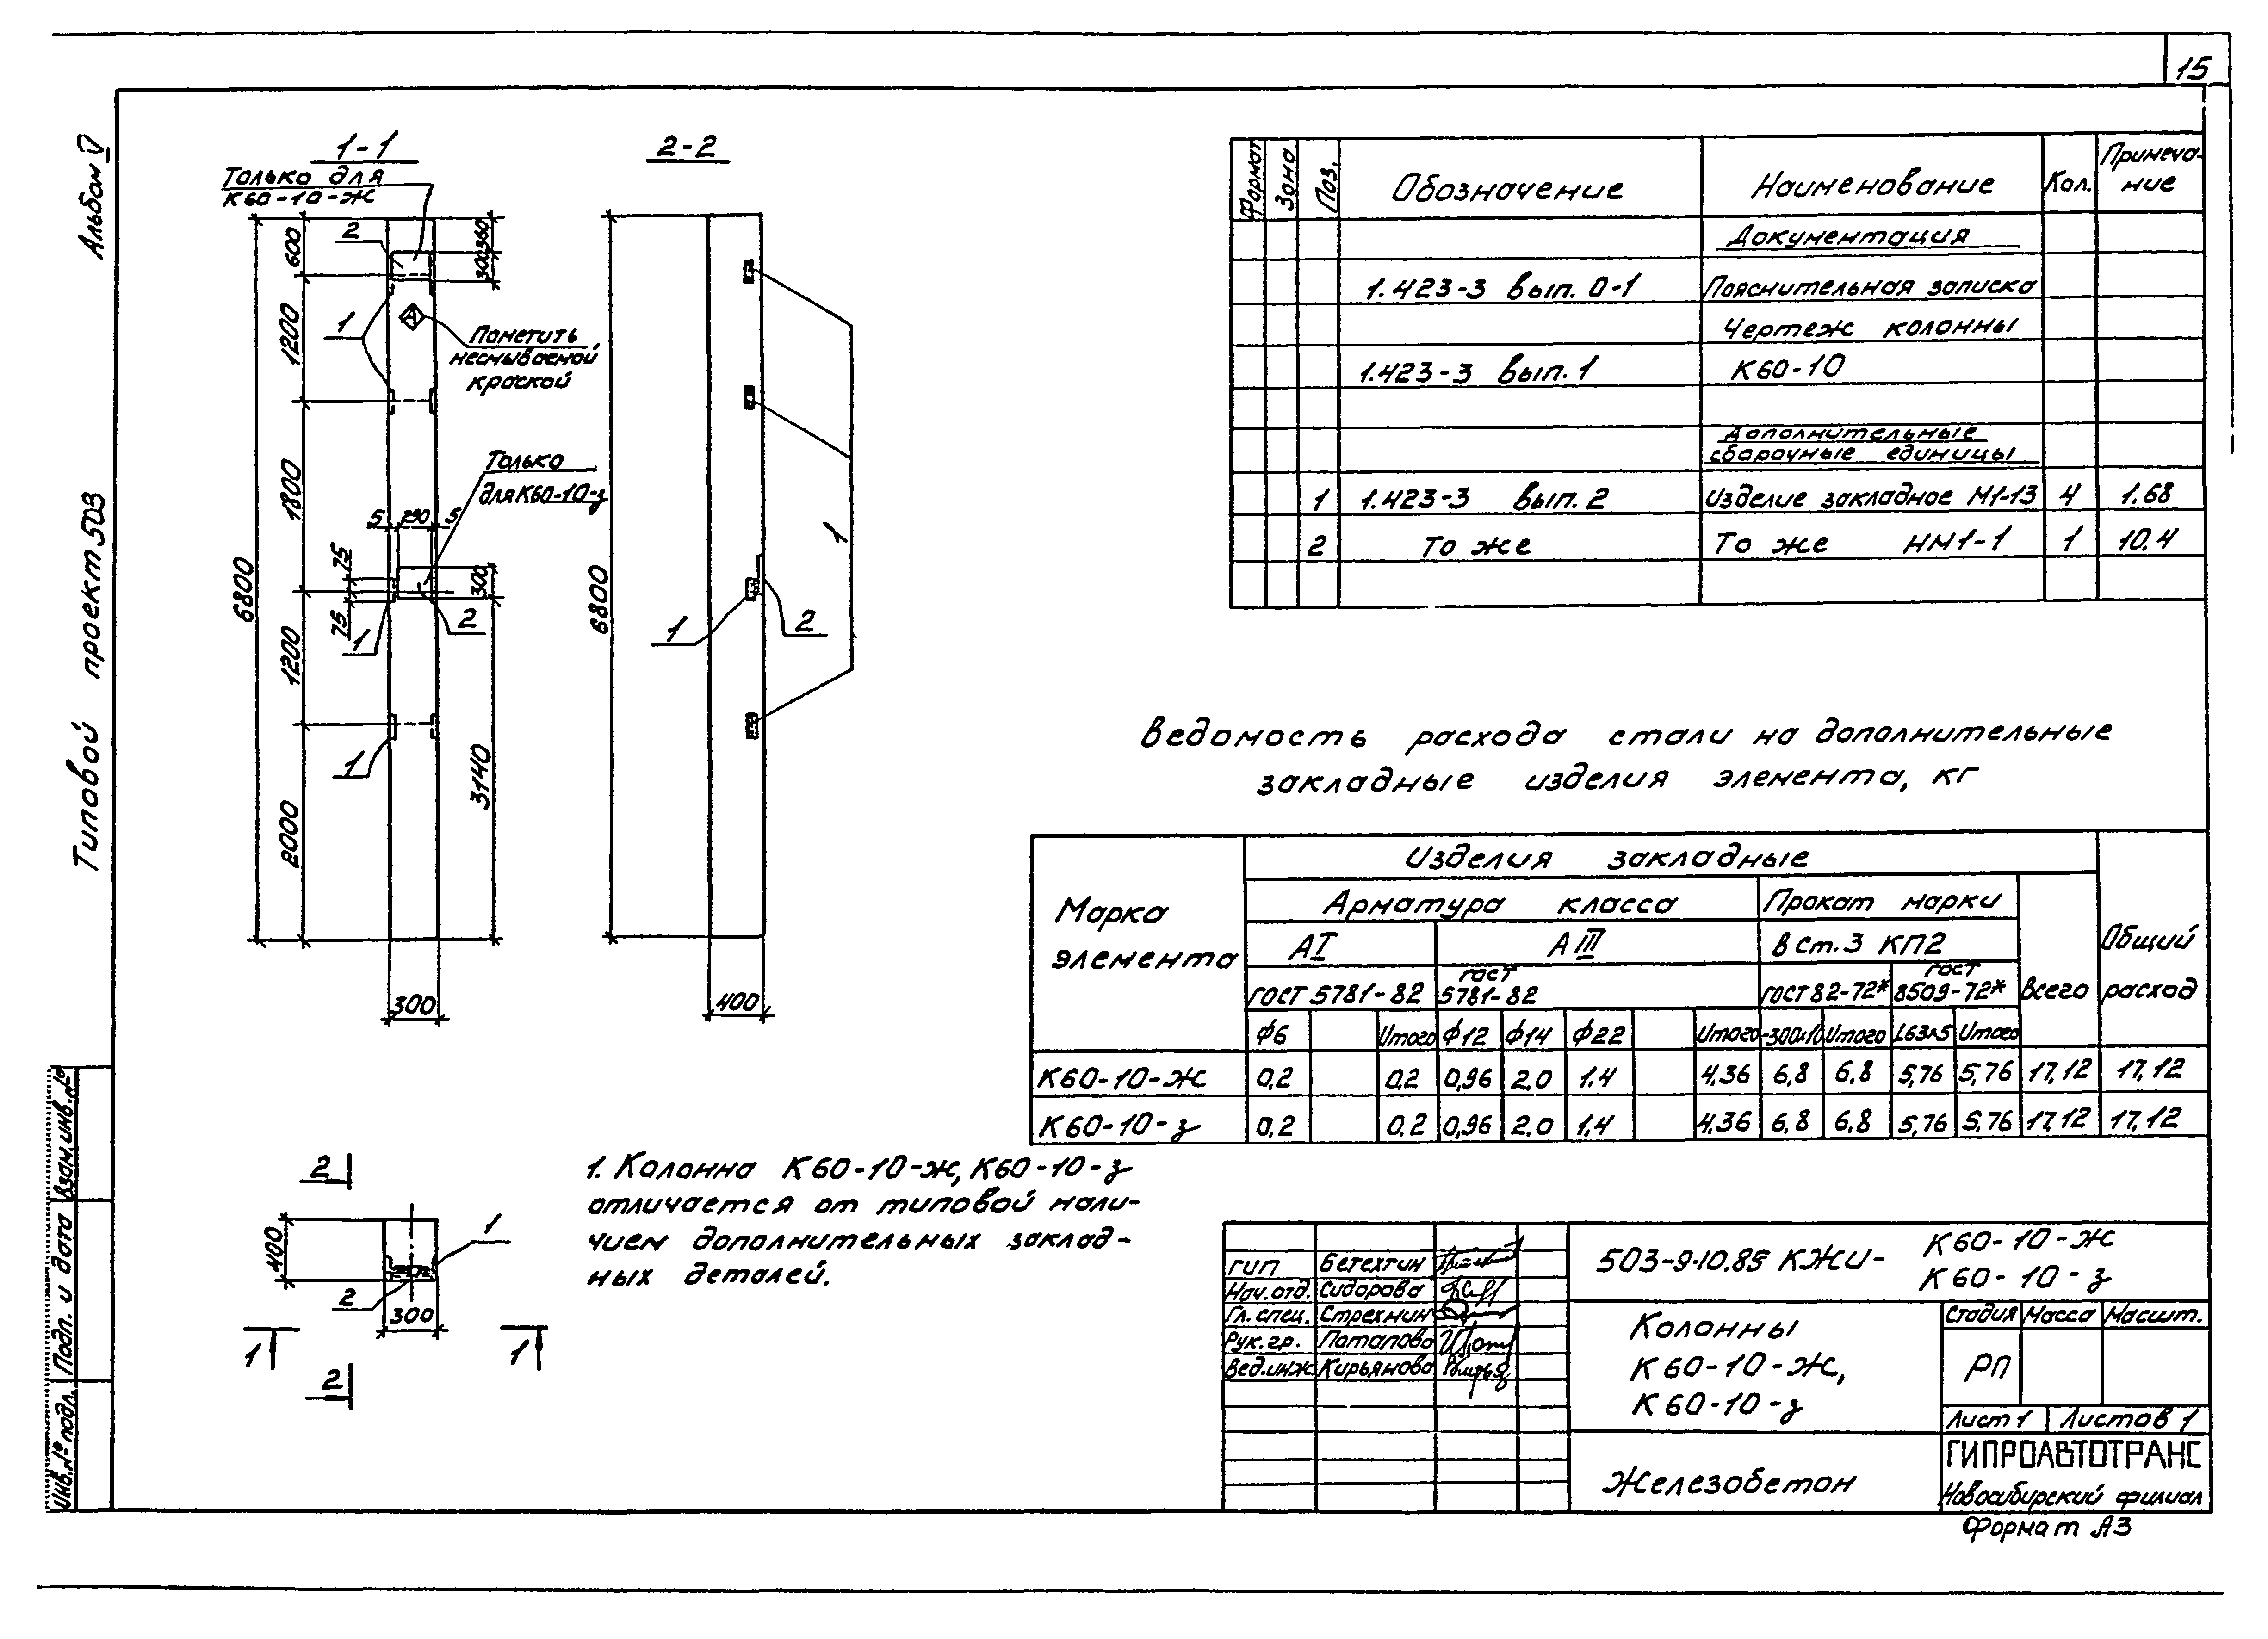 15
Альбом V
Типовой проект 503
1-1
Только для
К60-10-Ж
2
600
360
300
1200
1
Пометить
несмываемой
краской
1800
Только
для К60-10-з
5 290 5
75
75
300
1
2
6800
1200
1
3140
2000
300
2-2
6800
1
1
2
400
Формат Зона Поз. Обозначение Наименование Кол. Примеча-
ние
Документация
1.423-3 вып. 0-1 Пояснительная записка
Чертеж колонны
1.423-3 вып. 1 К60-10
Дополнительные
сборочные единицы
1 1.423-3 вып. 2 Изделие закладное М1-13 4 1.68
2 То же То же НМ1-1 1 10.4
Ведомость расхода стали на дополнительные
закладные изделия элемента, кг
Марка
элемента
Изделия закладные
Арматура класса Прокат марки
АI АIII В Ст.3 КП2
ГОСТ 5781-82 ГОСТ 5781-82 ГОСТ 82-72* ГОСТ 8509-72* Всего Общий расход
ф6 Итого ф12 ф14 ф22 Итого -300х10 Итого L63х5 Итого
К60-10-Ж 0,2 0,2 0,96 2.0 1.4 4,36 6,8 6,8 5,76 5,76 17,12 17,12
К60-10-з 0,2 0,2 0,96 2.0 1,4 4,36 6,8 6,8 5,76 5,76 17,12 17,12
2
400
1
2
300
1 1
2
1. Колонна К60-10-Ж, К60-10-з
отличается от типовой нали-
чием дополнительных заклад-
ных деталей.
503-9-10.85 КЖИ- К60-10-Ж
К60-10-з
ГИП Бетехтин
Нач.отд. Сидорова
Гл.спец. Стрехнин
Рук.гр. Потапова
Вед.инж. Кирьянова
Колонны
К60-10-Ж,
К60-10-з
Стадия Масса Масшт.
РП
Лист 1 Листов 1
Железобетон
ГИПРОАВТОТРАНС
Новосибирский филиал
Формат А3
Инв.№ подл. Подп. и дата Взам.инв.№